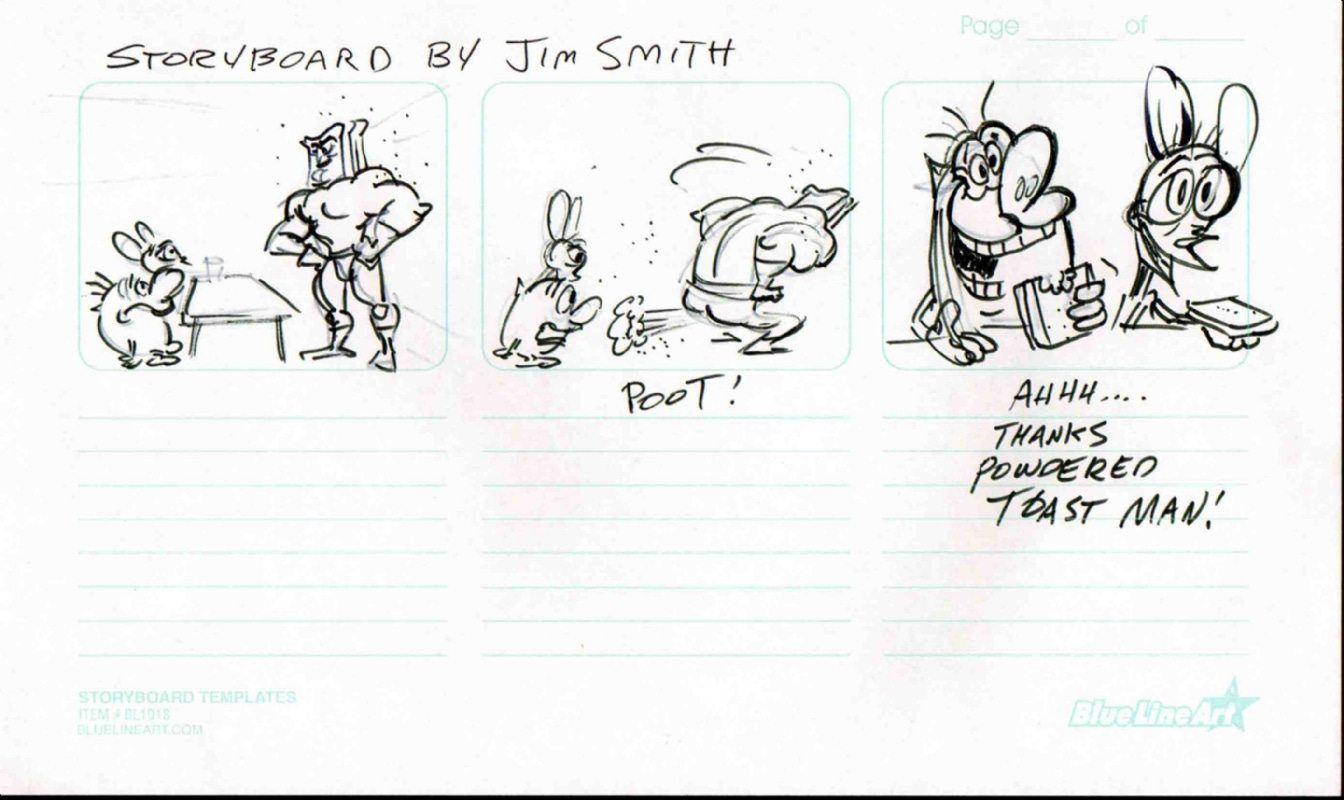 Page ______ of ______
STORYBOARD BY JIM SMITH
POOT!
AHHH....
THANKS
POWDERED
TOAST MAN!
STORYBOARD TEMPLATES
ITEM # BL1018
BLUELINEART.COM
BlueLineArt